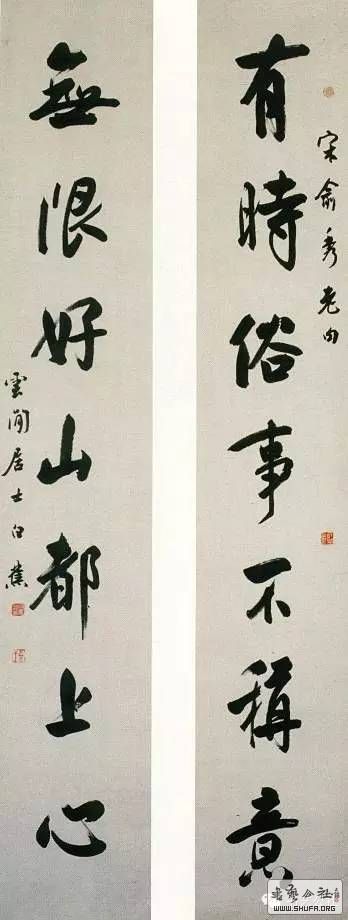 宋俞秀老句
有時俗事不稱意
無限好山都上心
雲間居士白蕉
书艺公社
WWW.SHUFA.ORG